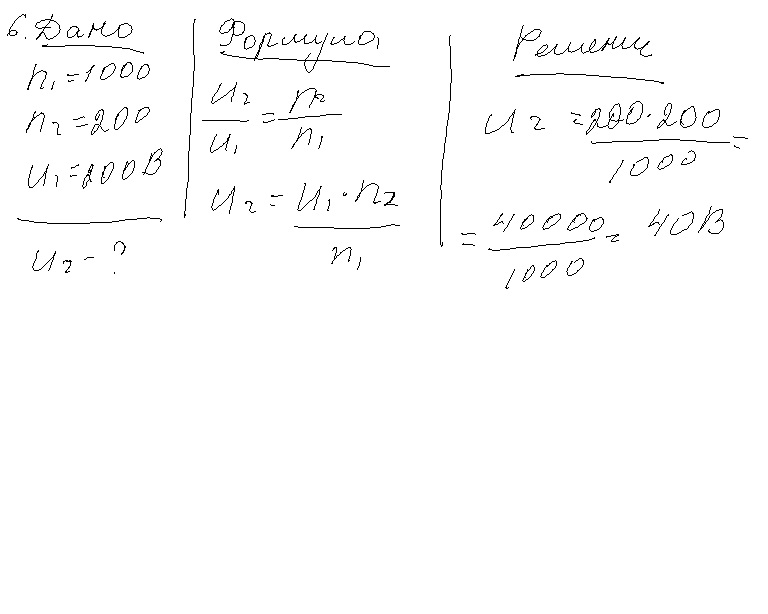 6. Дано
n₁=1000
n₂=200
U₁=200В
U₂-?
Формула
U₂/U₁ = n₂/n₁
U₂ = U₁·n₂/n₁
Решение
U₂ = 200·200/1000 =
= 40000/1000 = 40В